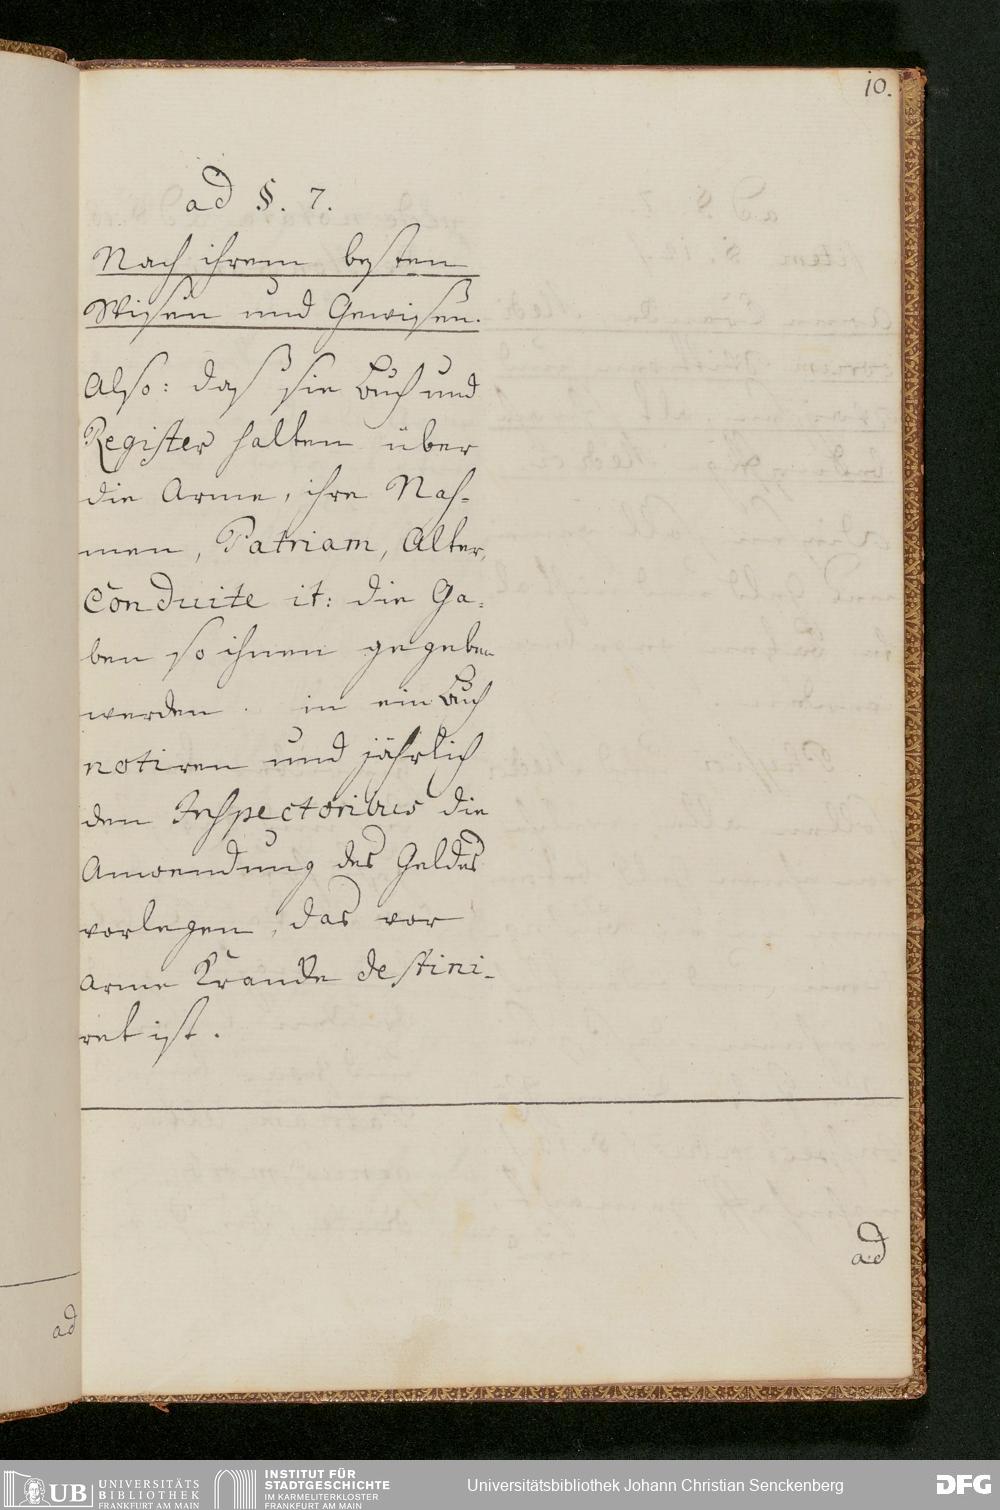 10.
ad §. 7.
Nach ihrem besten
Wißen und Gewißen.
Also: daß sie Buch und
Register halten über
die Arme, ihre Nah-
men, Patriam, Alter,
Conduite it: die Ga-
ben so ihnen gegeben
werden. in ein Buch
notiren und jährlich
den Inspectoribus die
Anwendung des Geldes
vorlegen, das vor
arme Krancke destini-
ret ist.
ad
ad
UB UNIVERSITÄTS
BIBLIOTHEK
FRANKFURT AM MAIN
INSTITUT FÜR
STADTGESCHICHTE
IM KARMELITERKLOSTER
FRANKFURT AM MAIN
Universitätsbibliothek Johann Christian Senckenberg
DFG